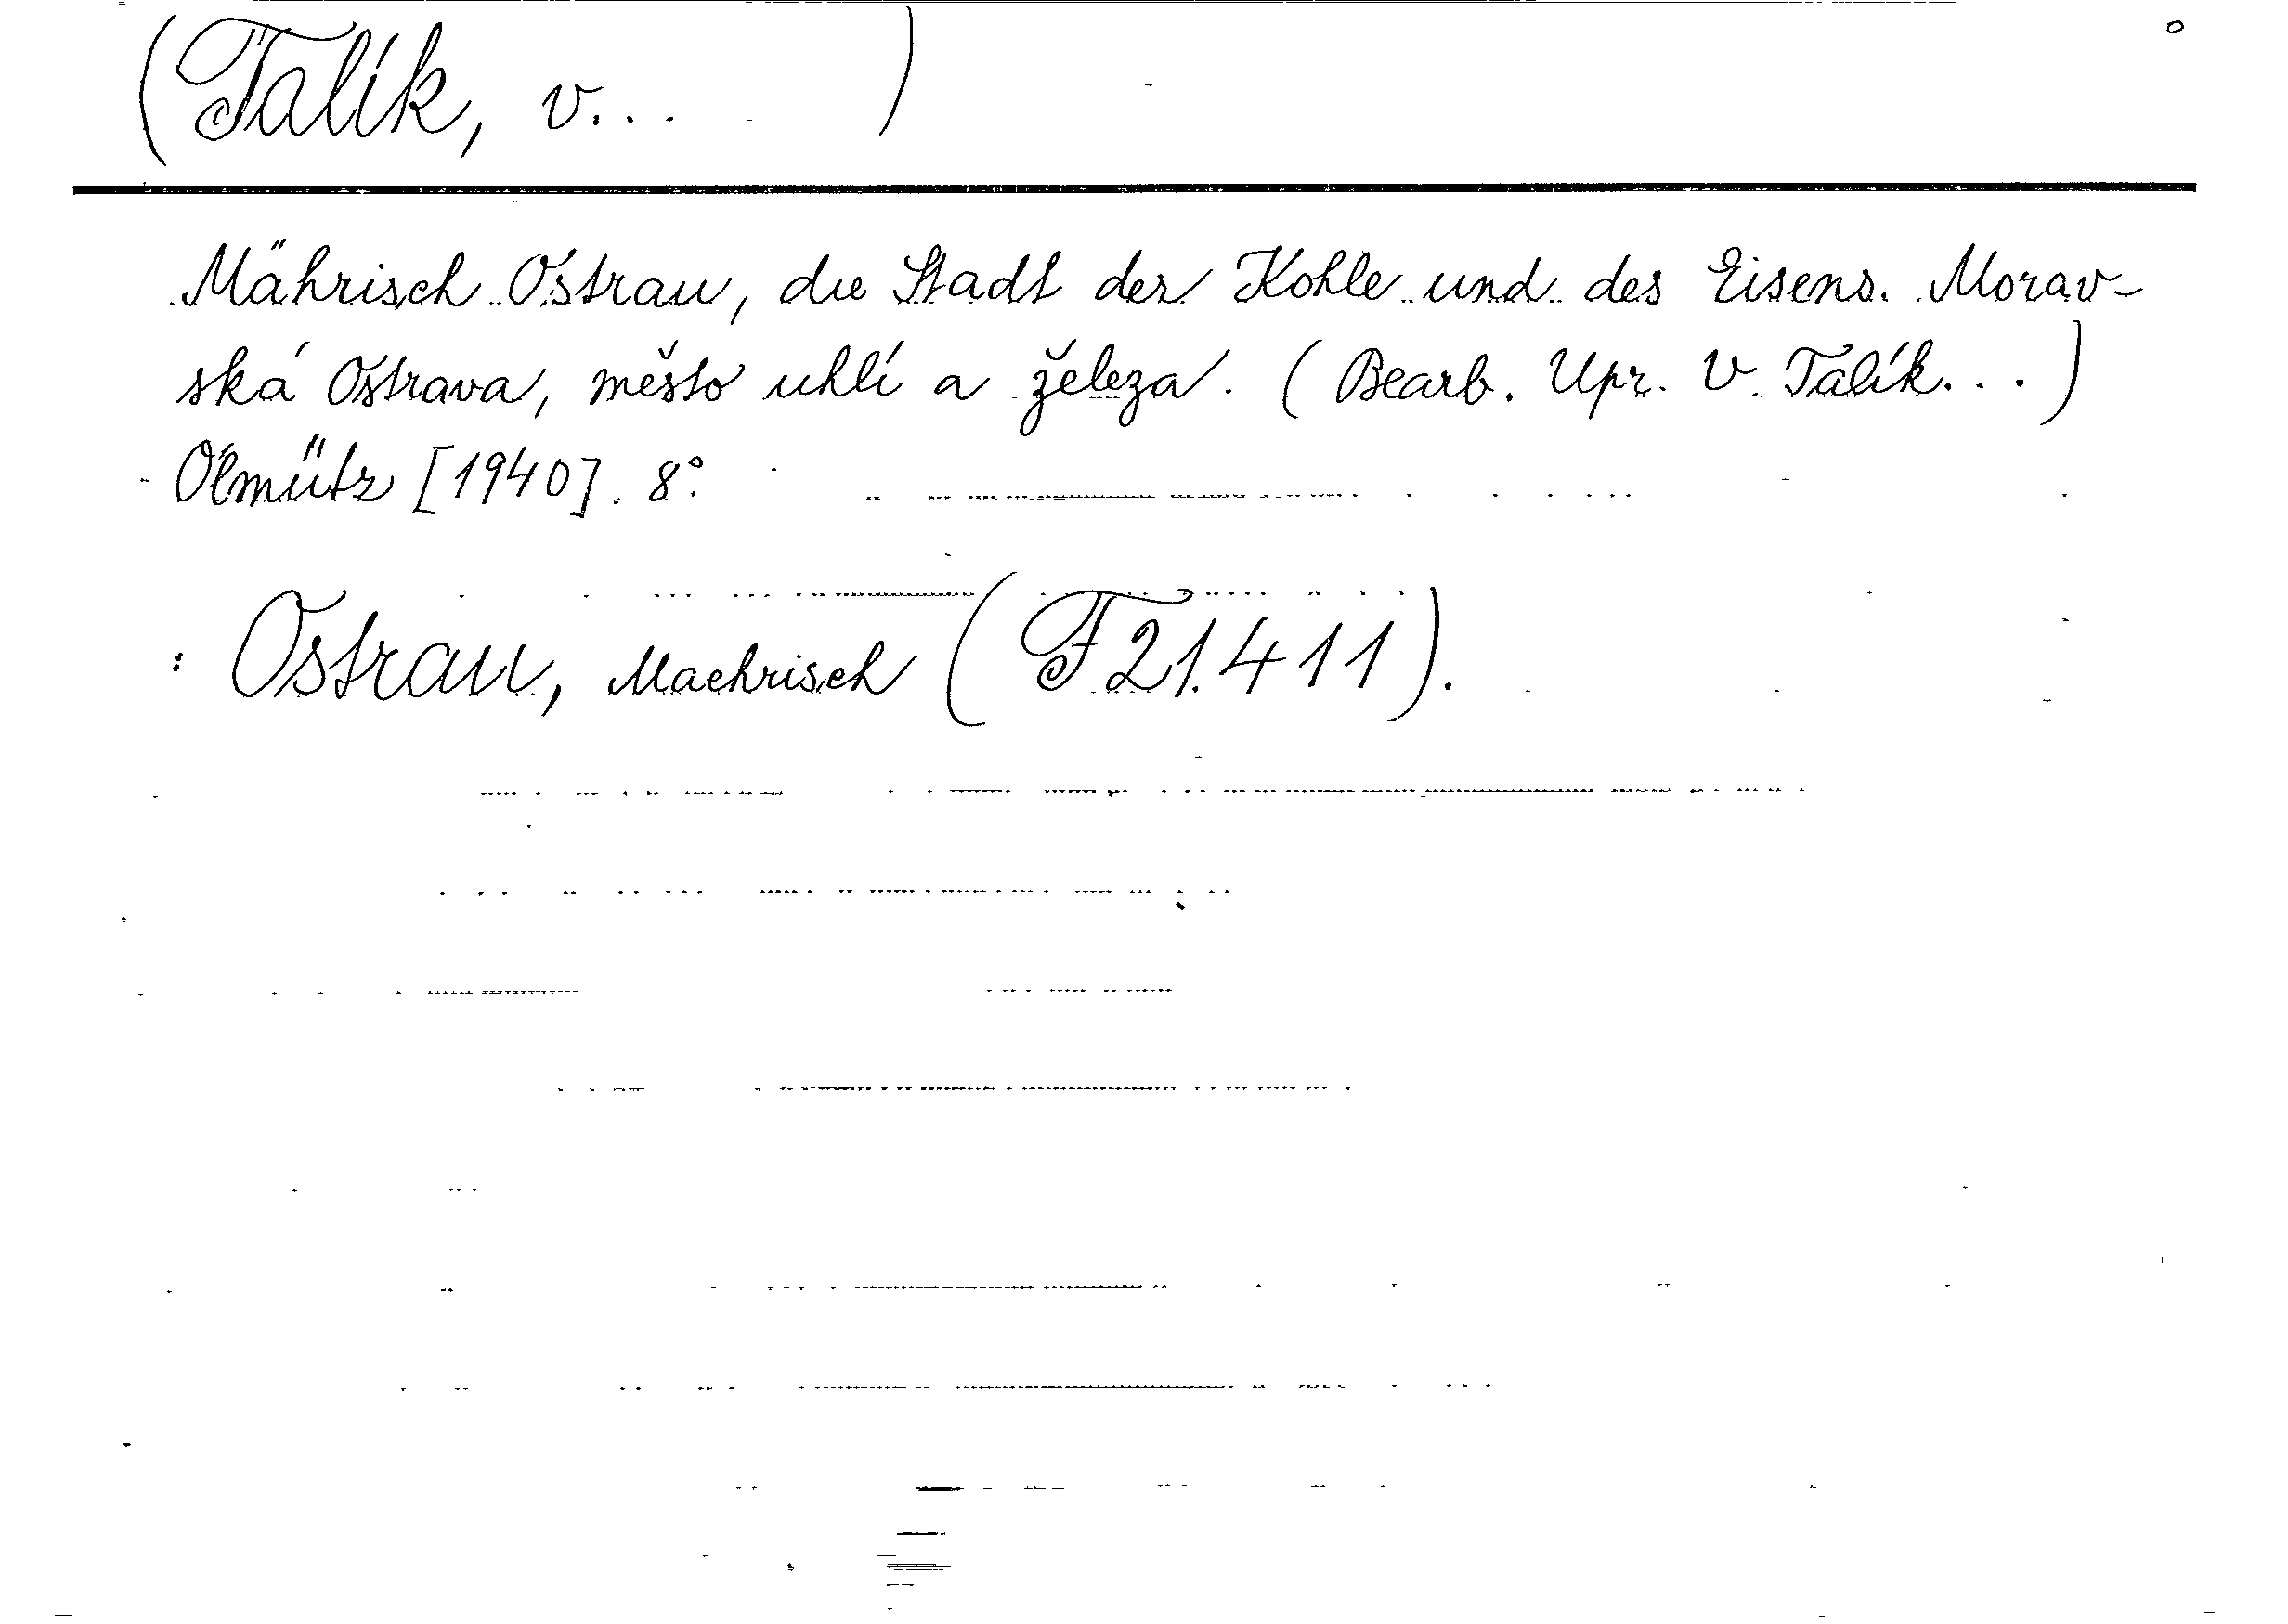 (Talík, V... )
Mährisch Ostrau, die Stadt der Kohle und des Eisens. Morav-
ská Ostrava, město uhlí a železa. (Bearb. Upr. V. Talík...)
Olmütz [1940]. 8°.
: Ostrau, Maehrisch (F 21.411).